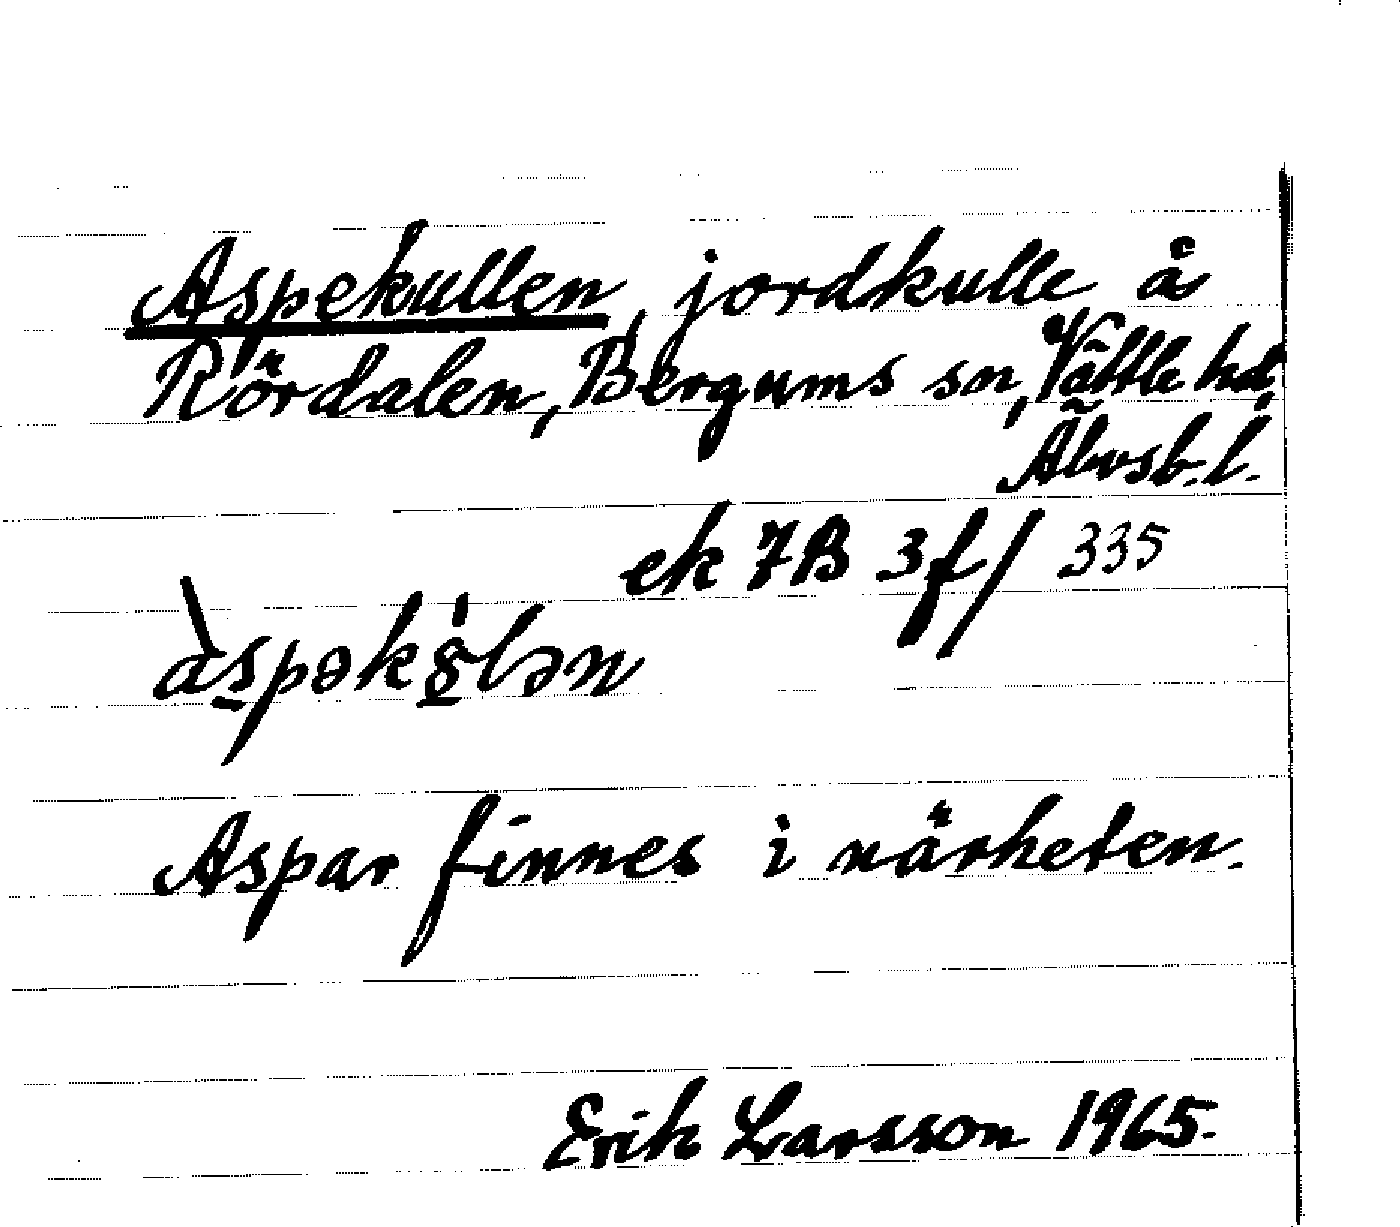 Aspekullen, jordkulle å
Rördalen, Bergums sn, Vättle hd,
Älvsb. l.
ek 7B 3f/ 335
Aspar finnes i närheten.
Erik Larsson 1965.